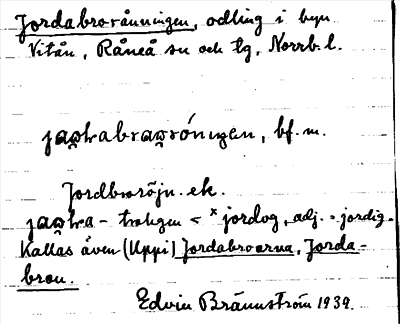 Jordabrorånningen, odling i byn
Vitån, Råneå sn och tg, Norrb. l.
bf. m.
Jordbroröjn. ek.
troligen < × jordog, adj. = jordig.
Kallas även (Uppi) Jordabroarna, Jorda-
bron.
Edvin Brännström 1939.